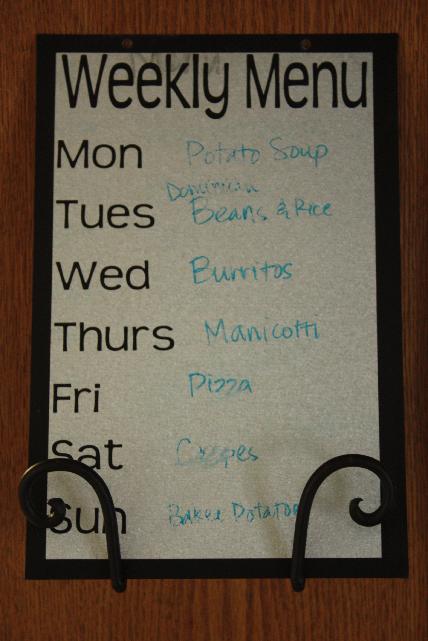 Weekly Menu
Mon Potato Soup
Dominican
Tues Beans & Rice
Wed Burritos
Thurs Manicotti
Fri Pizza
Sat Crepes
Sun Baked Potatoes